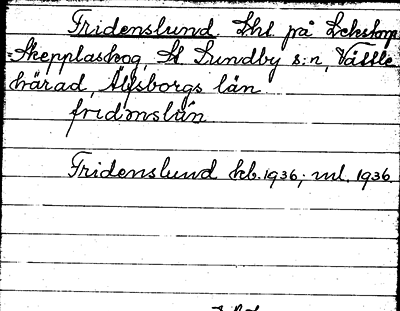 Fridenslund Lht. på Lekstorp
-Skepplaskog, St. Lundby s:n, Vättle
härad, Älfsborgs län
fridənslún
Fridenslund kb. 1936; ml. 1936